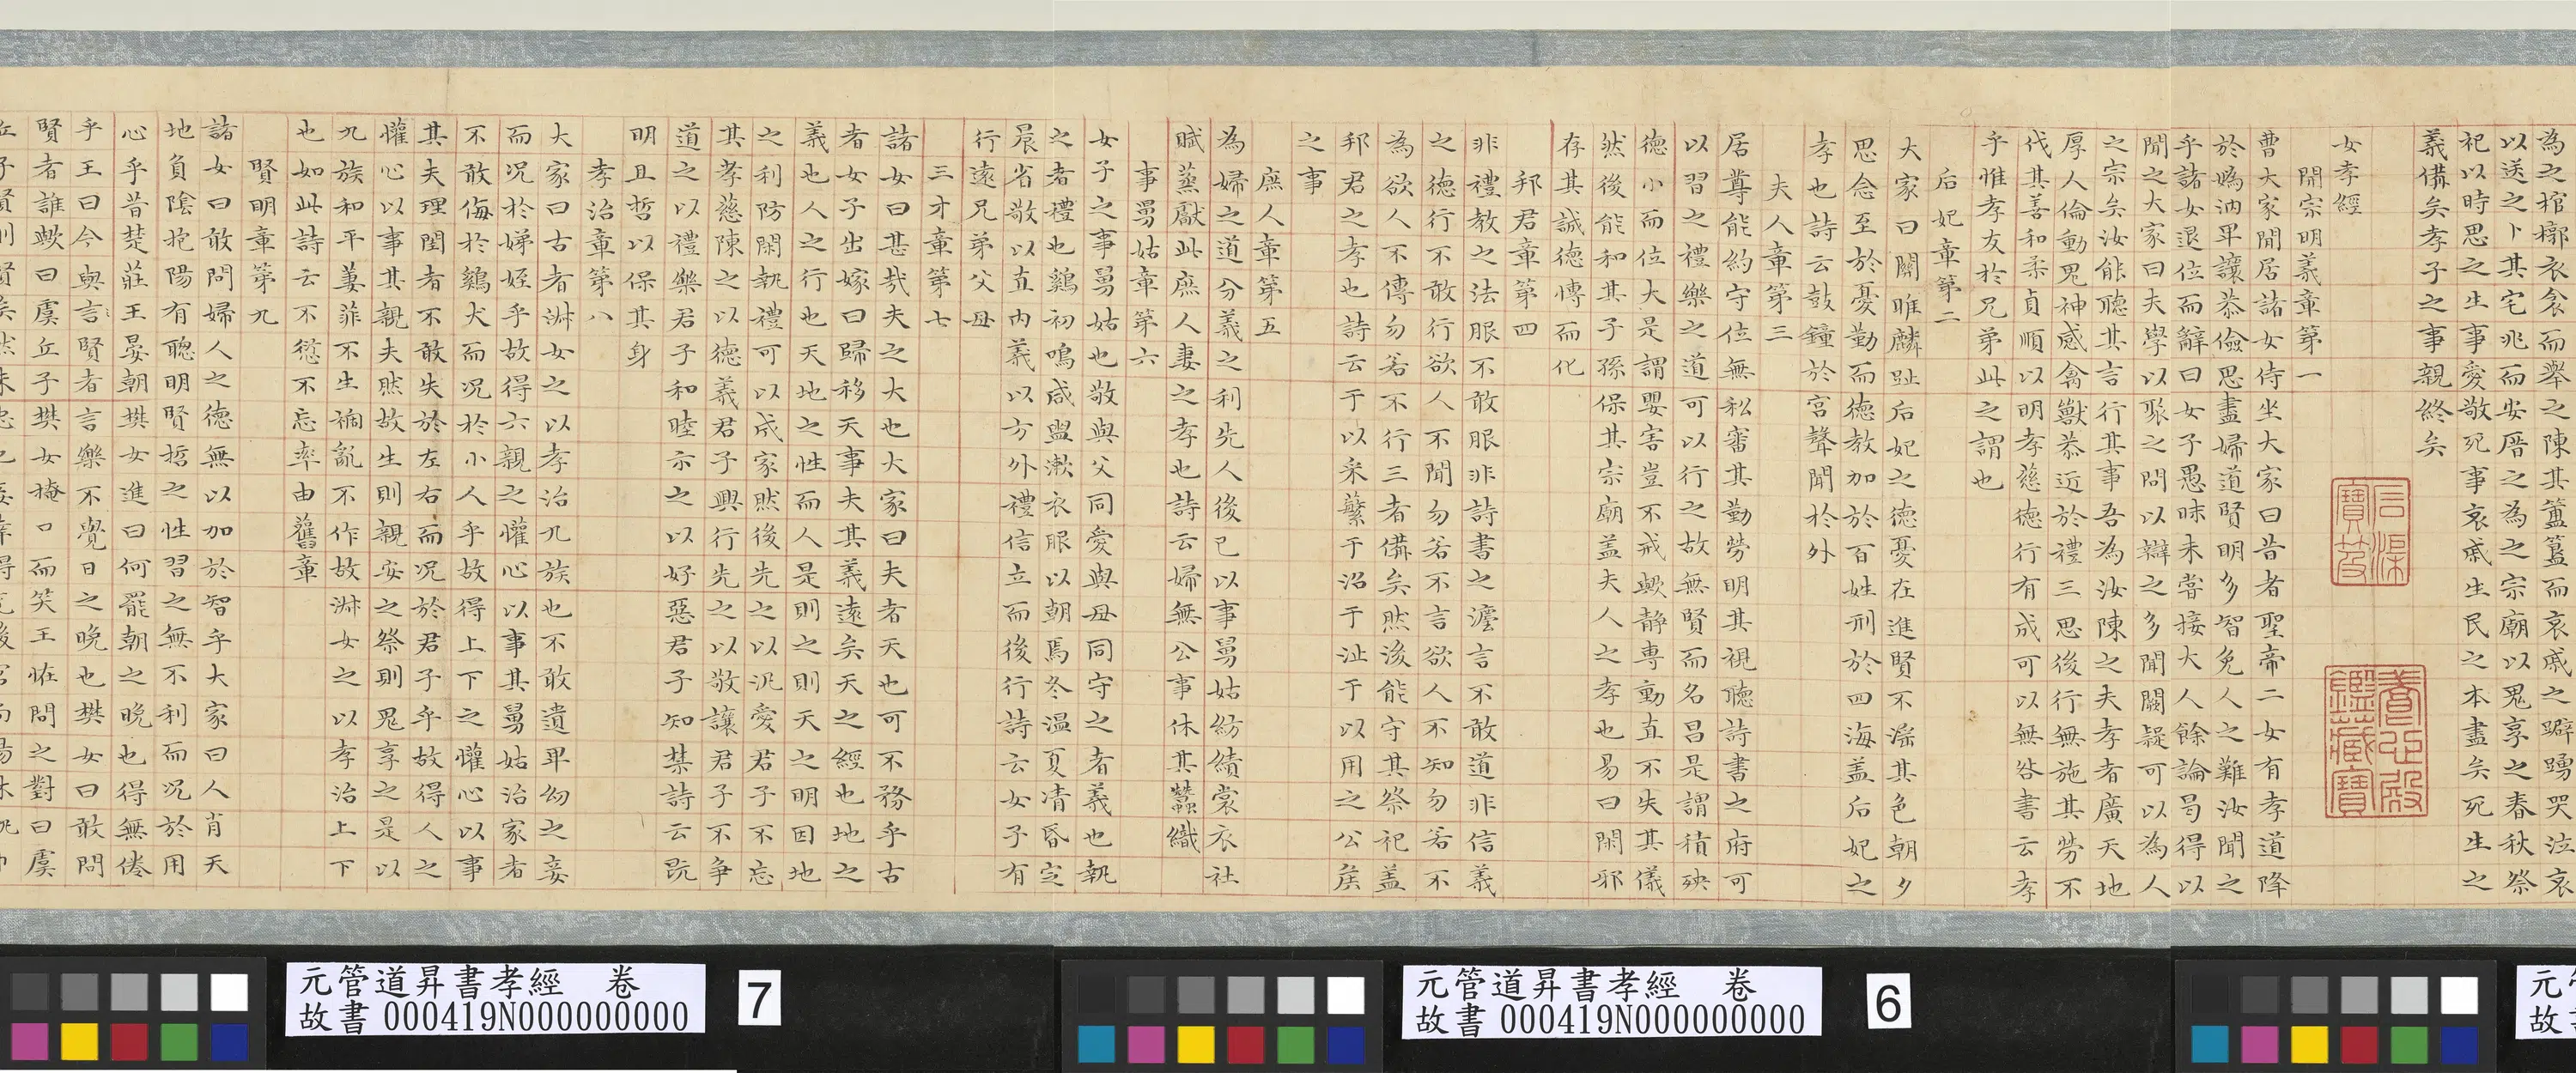 為之棺槨衣衾而舉之陳其簠簋而哀戚之擗踴哭泣哀
以送之卜其宅兆而安厝之為之宗廟以鬼享之春秋祭
祀以時思之生事愛敬死事哀戚生民之本盡矣死生之
義備矣孝子之事親終矣
女孝經
開宗明義章第一
曹大家閒居諸女侍坐大家曰昔者聖帝二女有孝道降
於媯汭卑讓恭儉思盡婦道賢明多智免人之難汝聞之
乎諸女退位而辭曰女子愚昧未嘗接大人餘論曷得以
聞之大家曰夫學以聚之問以辯之多聞闕疑可以為人
之宗矣汝能聽其言行其事吾為汝陳之夫孝者廣天地
厚人倫動鬼神感禽獸恭近於禮三思後行無施其勞不
伐其善和柔貞順以明孝慈德行有成可以無咎書云孝
乎惟孝友於兄弟此之謂也
后妃章第二
大家曰關雎麟趾后妃之德憂在進賢不淫其色朝夕
思念至於憂勤而德教加於百姓刑於四海盖后妃之
孝也詩云鼓鐘於宮聲聞於外
夫人章第三
居尊能約守位無私審其勤勞明其視聽詩書之府可
以習之禮樂之道可以行之故無賢而名昌是謂積殃
德小而位大是謂嬰害豈不戒歟静専動直不失其儀
然後能和其子孫保其宗廟盖夫人之孝也易曰閑邪
存其誠德愽而化
邦君章第四
非禮教之法服不敢服非詩書之灋言不敢道非信義
之德行不敢行欲人不聞勿若不言欲人不知勿若不
為欲人不傳勿若不行三者備矣然後能守其祭祀盖
邦君之孝也詩云于以采蘩于沼于沚于以用之公矦
之事
庶人章第五
為婦之道分義之利先人後己以事舅姑紡績裳衣社
賦蒸獻此庶人妻之孝也詩云婦無公事休其蠶織
事舅姑章第六
女子之事舅姑也敬與父同愛與母同守之者義也執
之者禮也雞初鳴咸盥漱衣服以朝焉冬温夏凊昏定
晨省敬以直內義以方外禮信立而後行詩云女子有
行遠兄弟父母
三才章第七
諸女曰甚哉夫之大也大家曰夫者天也可不務乎古
者女子出嫁曰歸移天事夫其義遠矣天之經也地之
義也人之行也天地之性而人是則之則天之明因地
之利防閑執禮可以成家然後先之以汎愛君子不忘
其孝慈陳之以德義君子興行先之以敬讓君子不爭
道之以禮樂君子和睦示之以好惡君子知禁詩云既
明且哲以保其身
孝治章第八
大家曰古者淑女之以孝治九族也不敢遺卑幼之妾
而况於娣姪乎故得六親之懽心以事其舅姑治家者
不敢侮於鷄犬而况於小人乎故得上下之懽心以事
其夫理閨者不敢失於左右而况於君子乎故得人之
懽心以事其親夫然故生則親安之祭則鬼享之是以
九族和平萋菲不生禍亂不作故淑女之以孝治上下
也如此詩云不愆不忘率由舊章
賢明章第九
諸女曰敢問婦人之德無以加於智乎大家曰人肖天
地負陰抱陽有聰明賢哲之性習之無不利而况於用
心乎昔楚莊王晏朝樊女進曰何罷朝之晚也得無倦
乎王曰今與賢者言樂不覺日之晚也樊女曰敢問
賢者誰歟曰虞丘子樊女掩口而笑王恠問之對曰虞
元管道昇書孝經 卷
故書 000419N000000000
7
元管道昇書孝經 卷
故書 000419N000000000
6